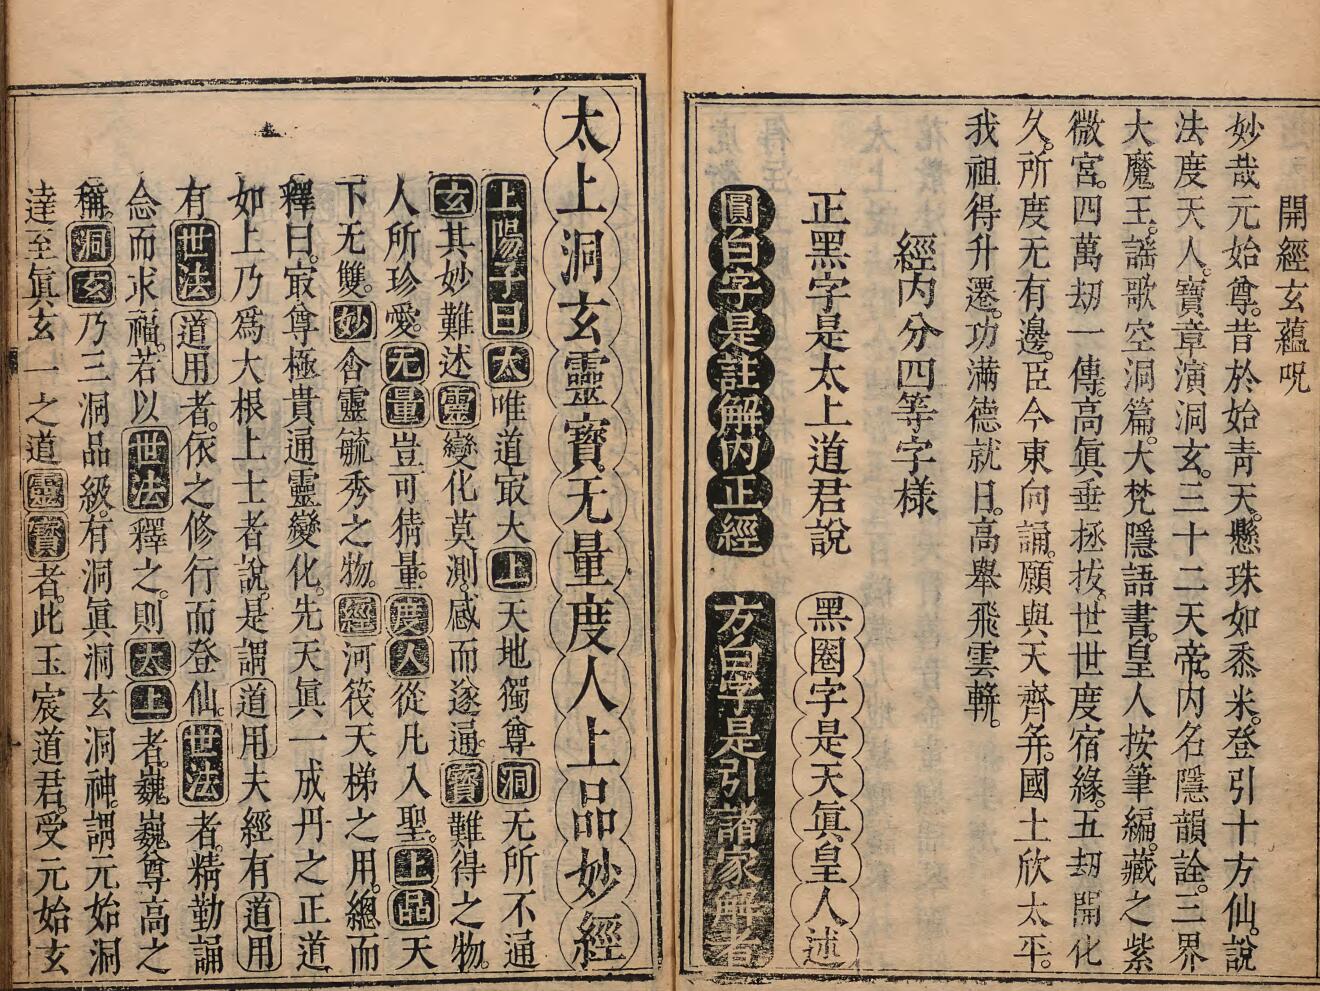 開經玄蘊呪
妙哉元始尊。昔於始青天。懸珠如黍米。登引十方仙。說
法度天人。寶章演洞玄。三十二天帝。內名隱韻詮。三界
大魔王。謡歌空洞篇。大梵隱語書。皇人按筆編。藏之紫
微宮。四萬劫一傳。高眞垂拯拔。世世度宿緣。五劫開化
久。所度无有邊。臣今東向誦。願與天齊年。國土欣太平。
我祖得升遷。功滿德就日。高舉飛雲軿。
經内分四等字様
正黑字是太上道君說 黑圈字是天眞皇人述
圓白字是註解内正經 方白字是引諸家解者
太上洞玄靈寶无量度人上品妙經
上陽子曰太唯道㝡大上天地獨尊洞无所不通
玄其妙難述靈變化莫測。感而遂通。寶難得之物。
人所珍愛。无量豈可猜量。度人從凡入聖。上品天
下无雙。妙含靈毓秀之物。經河筏天梯之用。總而
釋曰。㝡尊極貴通靈變化。先天眞一成丹之正道
如上乃爲大根上士者說。是謂道用夫經有道用
有世法道用者。依之修行而登仙。世法者。精勤誦
念而求福。若以世法釋之。則太上者。巍巍尊高之
稱。洞玄乃三洞品級。有洞眞洞玄洞神。謂元始洞
達至眞玄一之道靈寶者。此玉宸道君。受元始玄